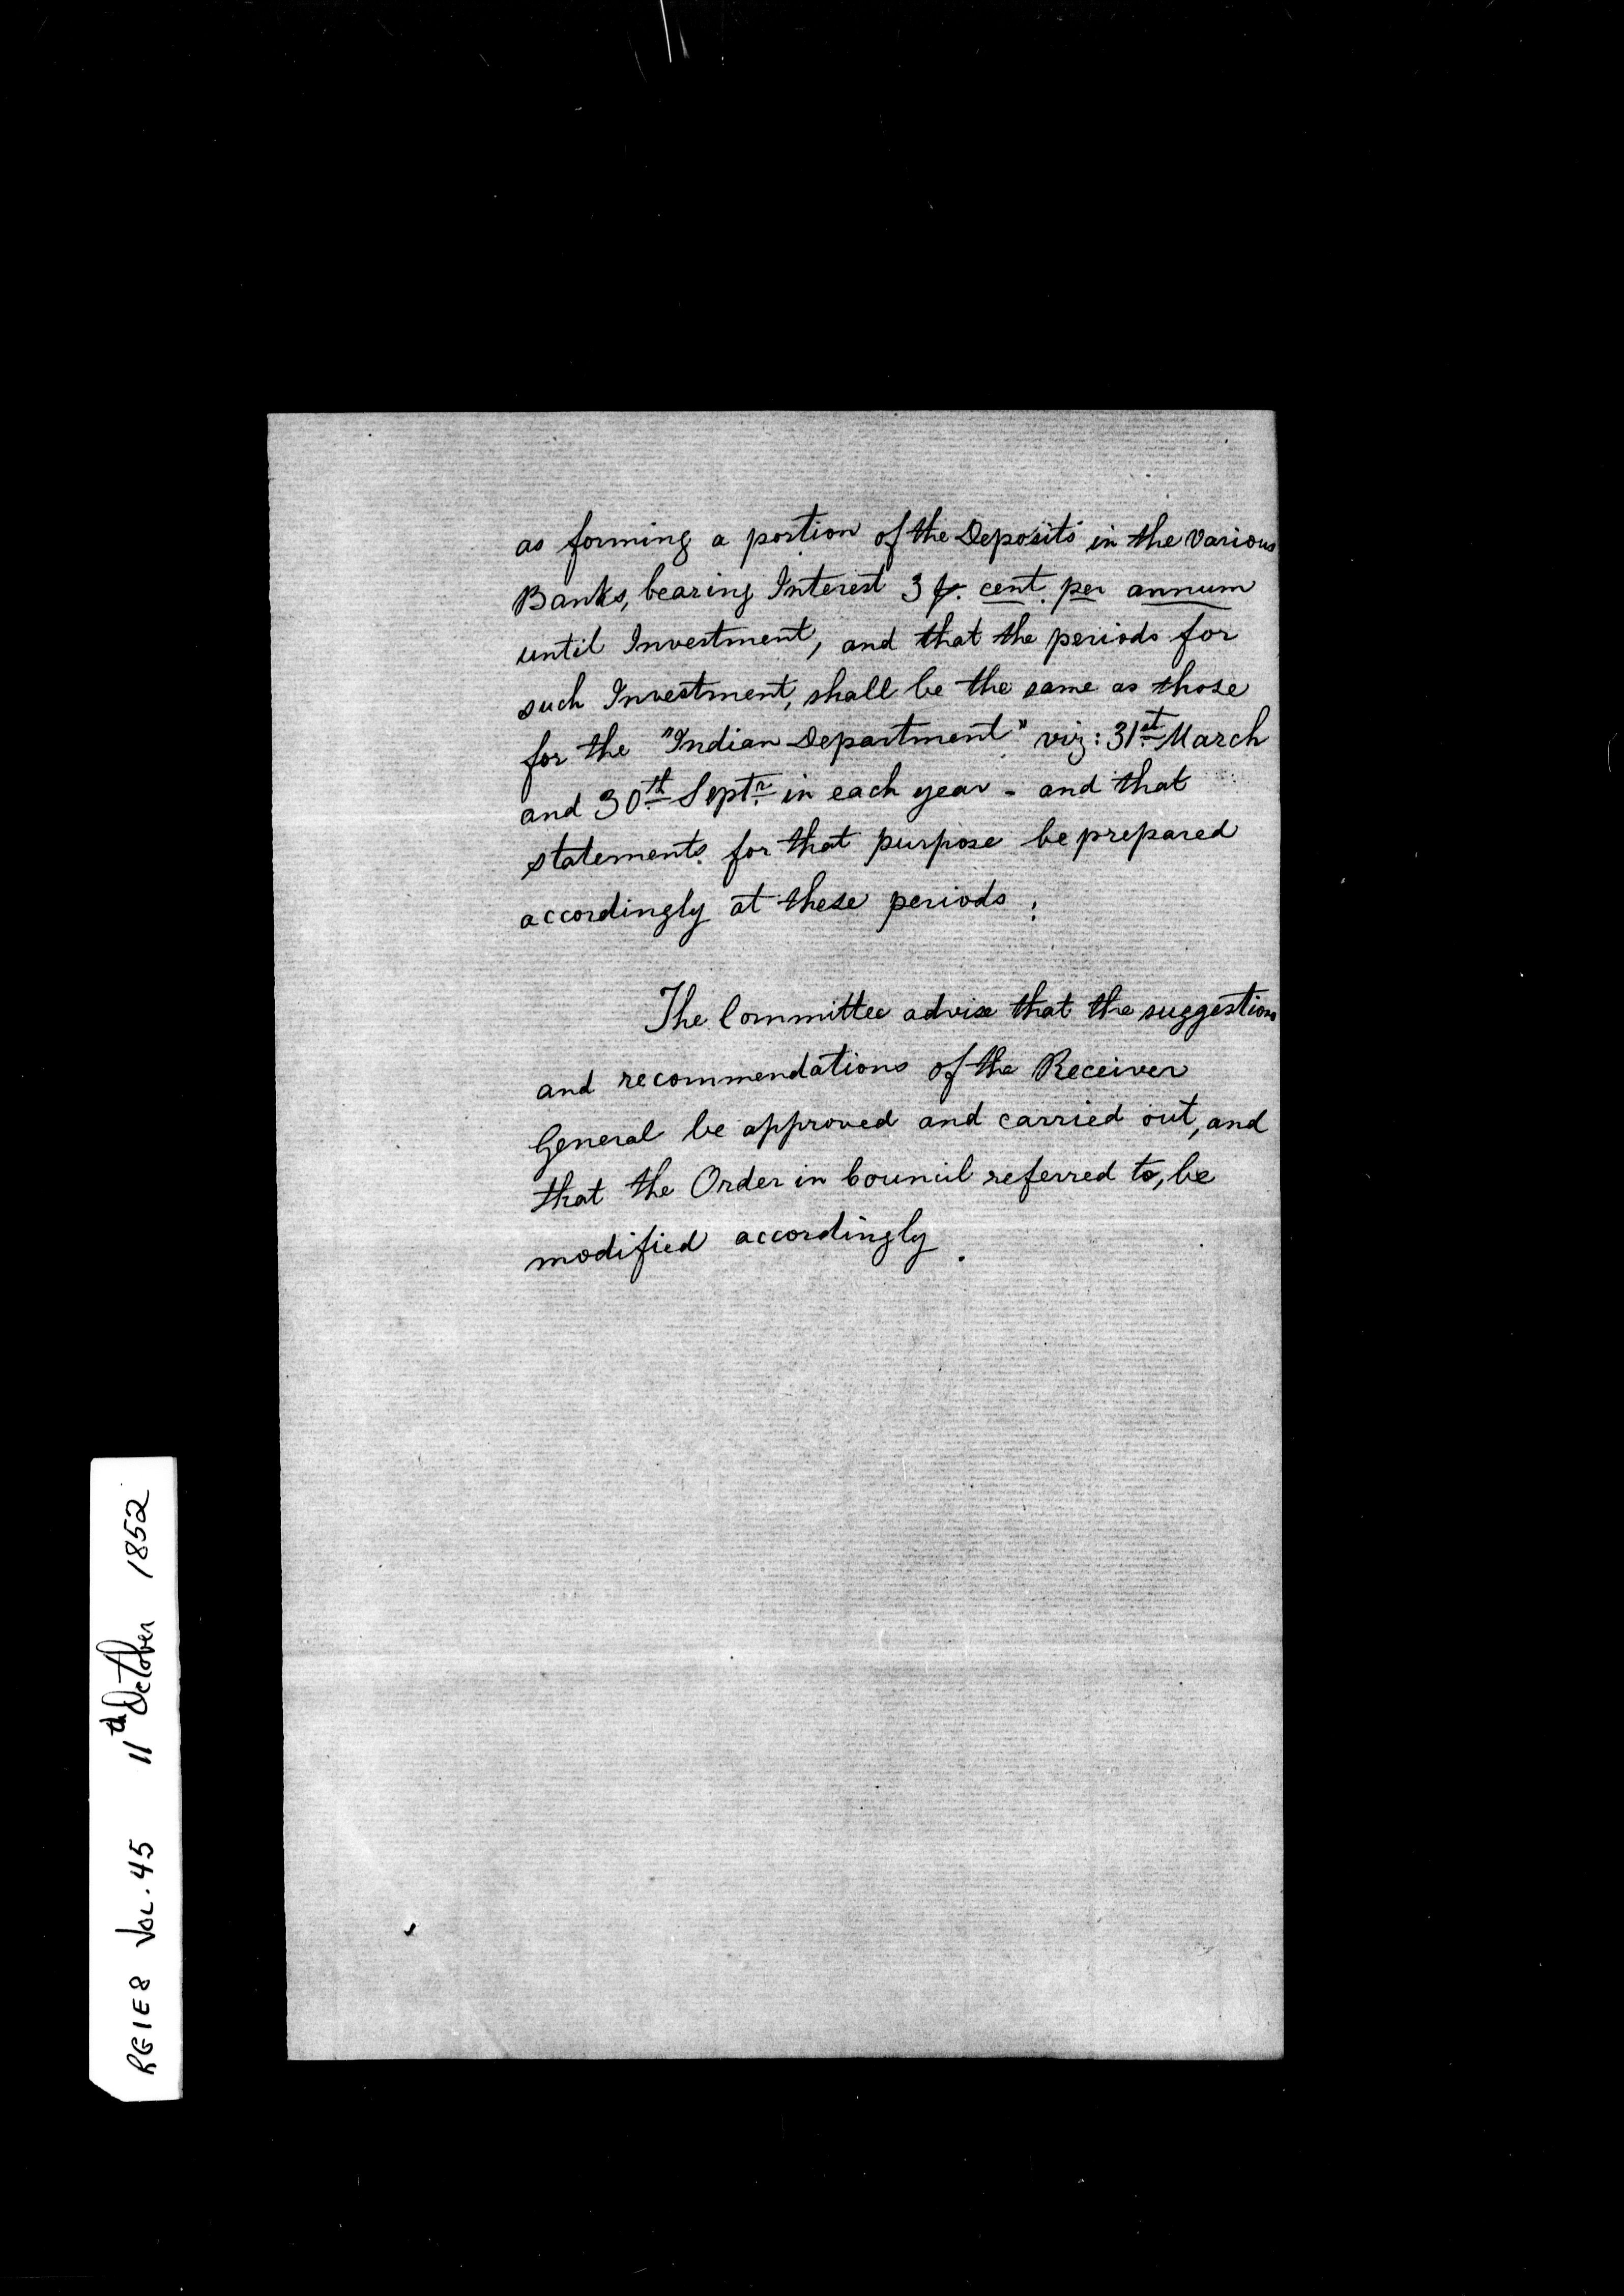 as forming a portion of the Deposits in the various
Banks, bearing Interest 3 ⅌. cent. per annum
until Investment, and that the periods for
such Investment, shall be the same as those
for the "Indian Department" viz: 31st March
and 30th Septr in each year - and that
statements for that purpose be prepared
accordingly at these periods ;
The Committee advise that the suggestions
and recommendations of the Receiver
General be approved and carried out, and
that the Order in Council referred to, be
modified accordingly.
RG1E8 Vol. 45 11th October 1852